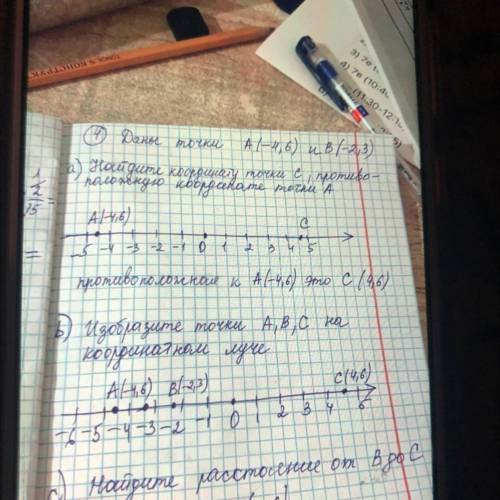 КОНСТРУК
3) 7в
4) 7в (10-4
(11·30-12:1
④ Даны точки A(-4,6) и B(-2,3)
a) Найдите координату точки C, противо-
положную координате точки A
1
2
15 =
A(-4,6) C
-5 -4 -3 -2 -1 0 1 2 3 4 5
=
противоположная к A(-4,6) это C (4,6)
b) Изобразите точки A, B, C на
координатном луче
A(-4,6) B(-2,3) C(4,6)
-6 -5 -4 -3 -2 -1 0 1 2 3 4 5
c) Найдите расстоение от B до C